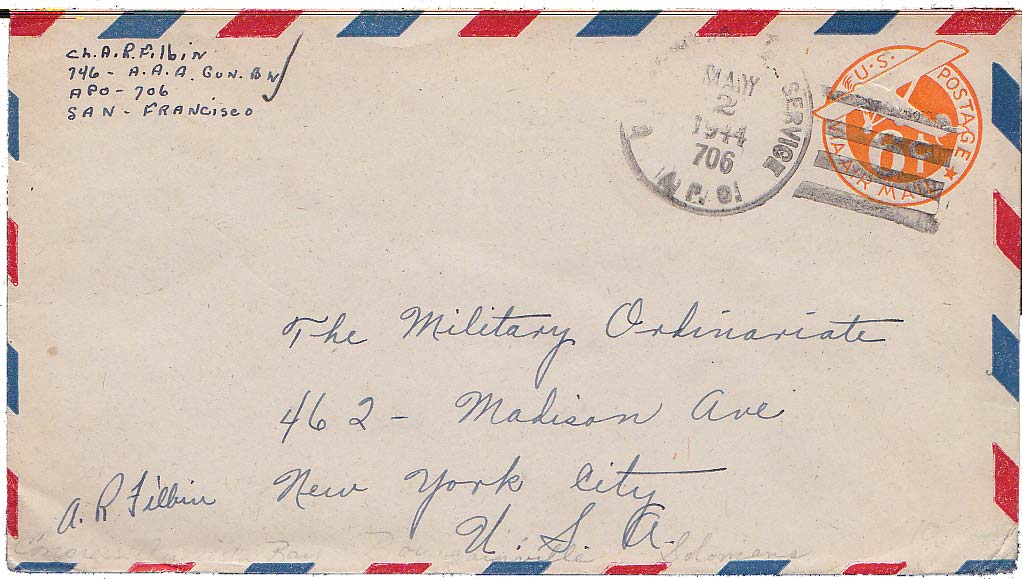 Ch. A. R. Filbin
746 - A.A.A. Gun. Bn
APO - 706
SAN - FRANCISCO
SERVICE
MAY
2
1944
706
A.P.O.
U.S. POSTAGE
6¢
VIA AIR MAIL
The Military Ordinariate
462 - Madison Ave
New York City
U. S. A.
A. R Filbin
Solomans